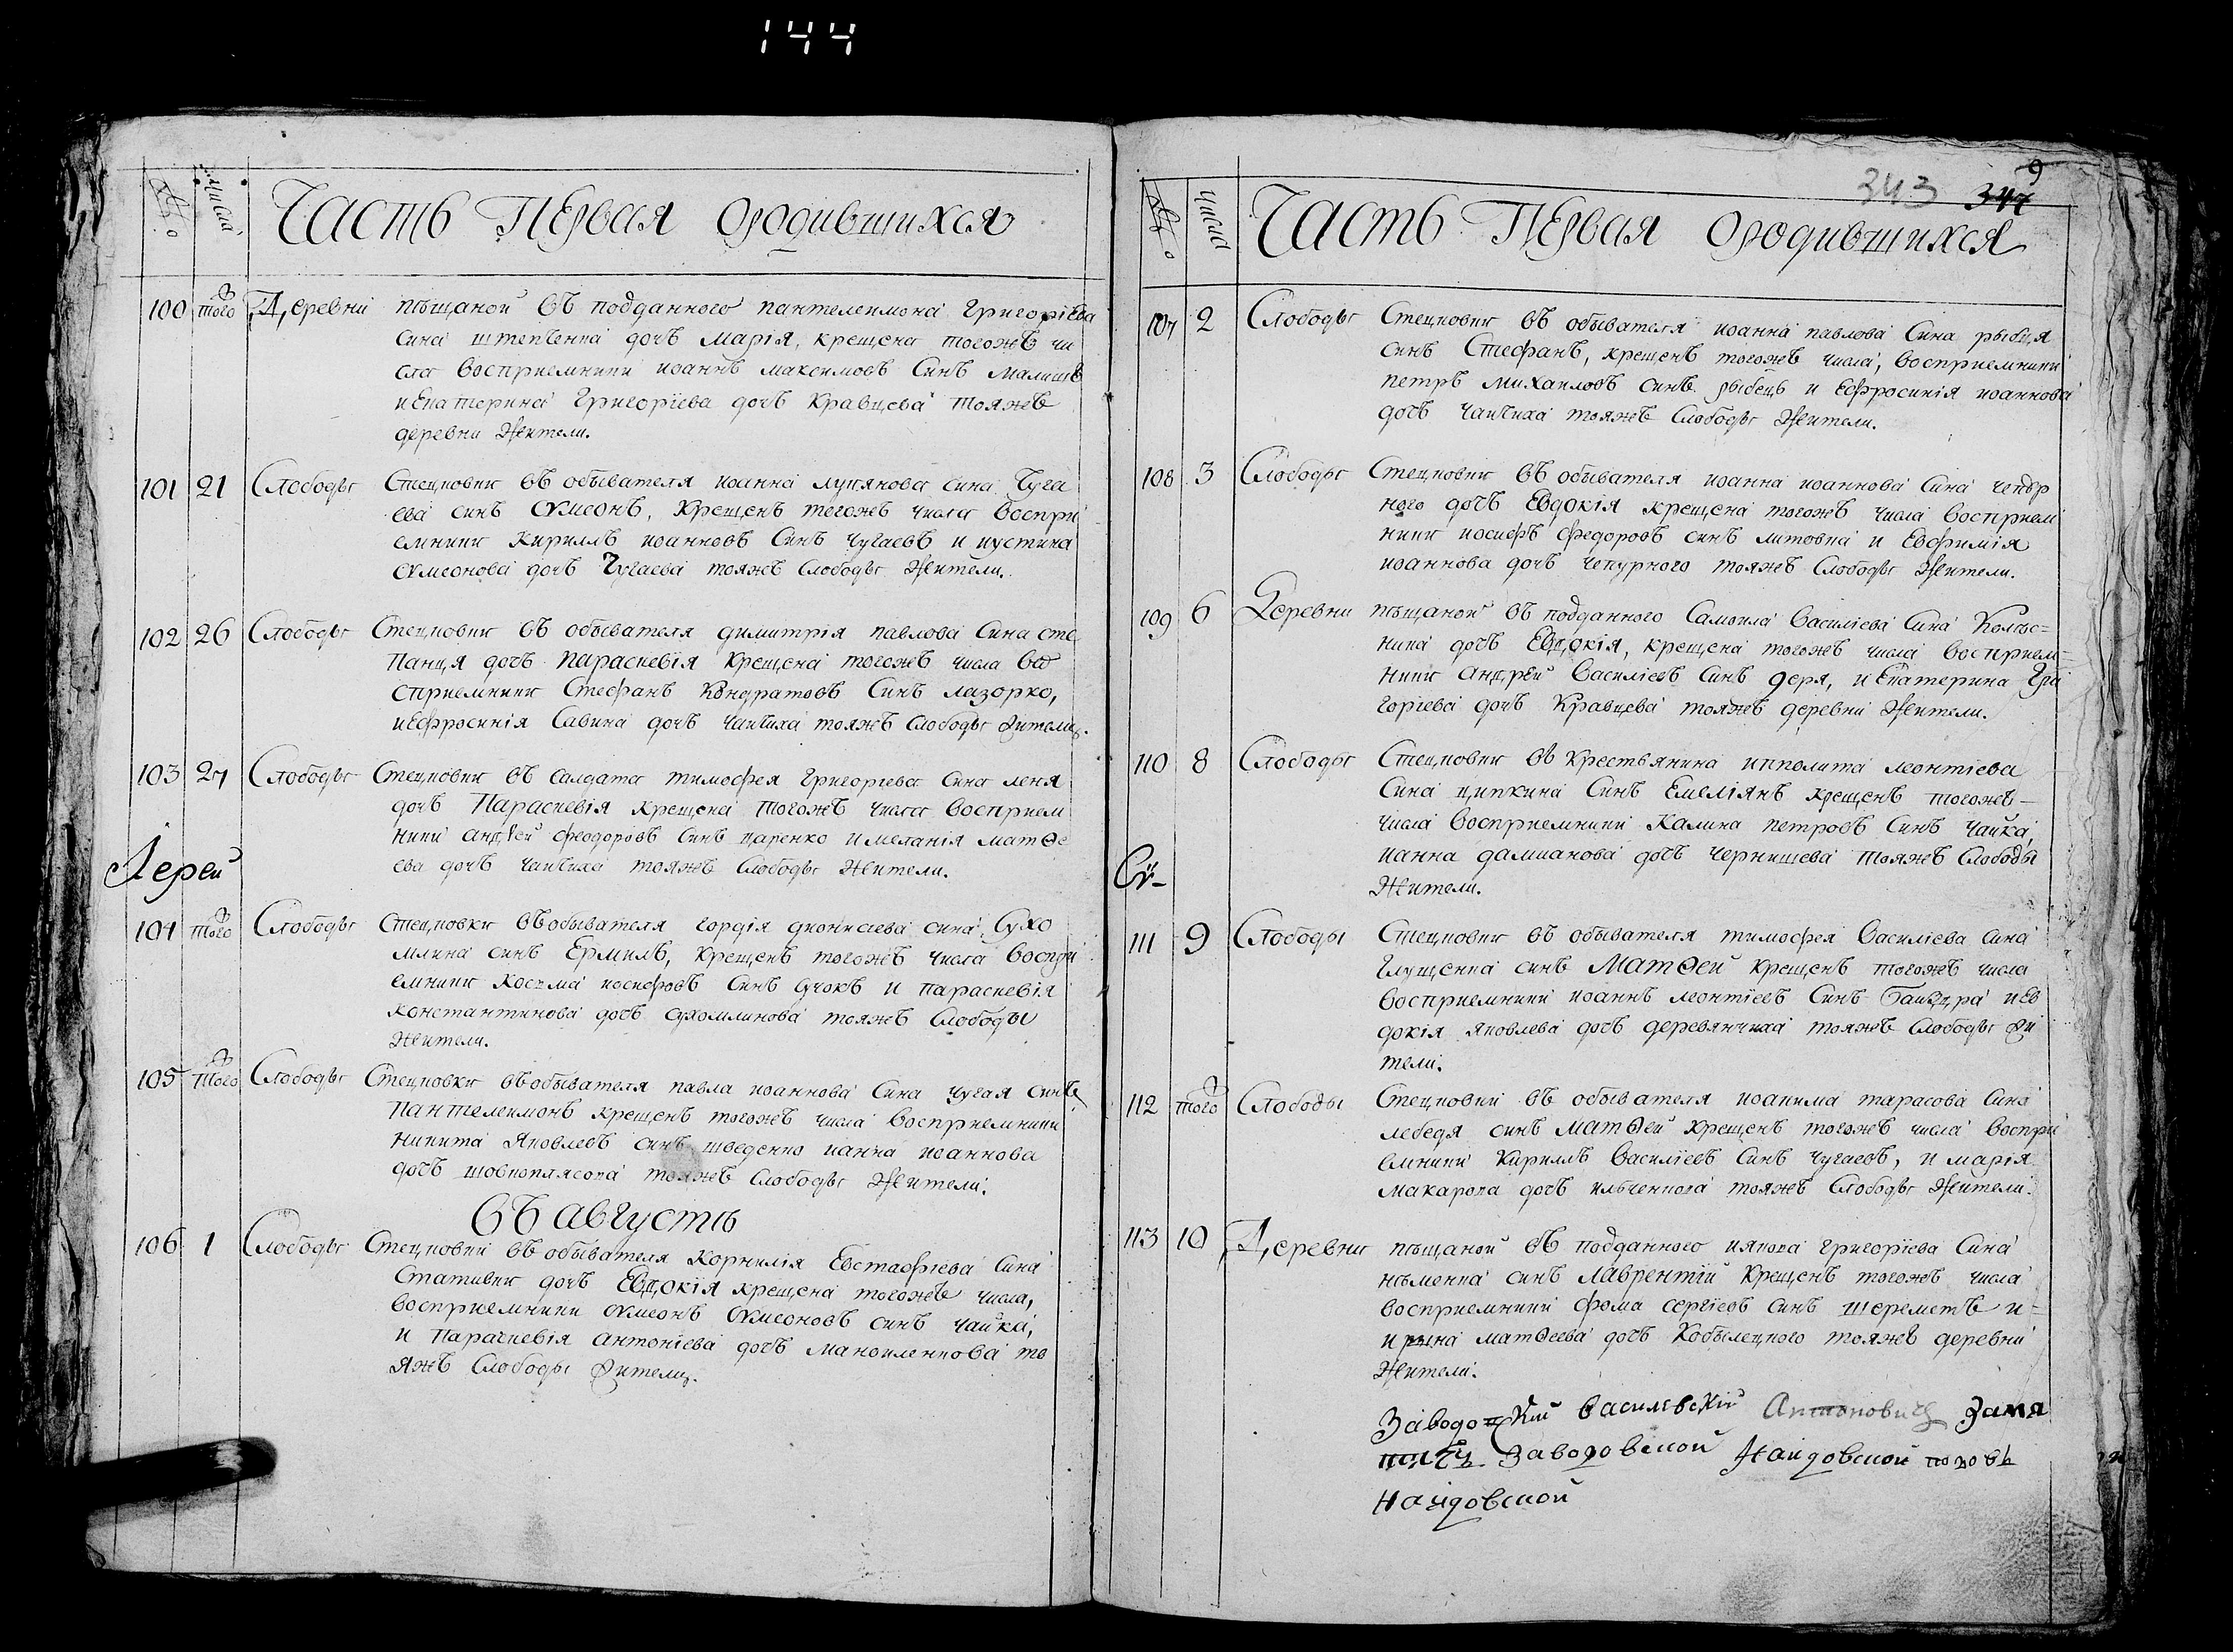 144
№ числа Часть Первая ородившихся
100 того Деревни пѣщаной въ подданного пантелеимона Григоріева
сина штепченка дочь марія, крещена тогожъ чи
сла восприемники иоаннъ максимовъ синъ малишъ
и Екатерина Григоріева дочъ Кравцева тояжъ
деревни жители.
101 21 Слободы Стецковки въ обывателя иоанна лукянова сина Чуга
ева синъ Сѵмеонъ, крещенъ тогожъ числа воспри
емники Кириллъ иоанновъ Синъ Чугаевъ и иустина
Сѵмеонова дочъ Чугаева тояжъ Слободы жители.
102 26 Слободы Стецковки въ обывателя димитрія павлова Сина сте
панця дочъ параскевія Крещена тогожъ числа во
сприемники Стефанъ Кондратовъ Синъ лазорко,
и Ефросинія Савина дочъ Чаичиха тояжъ Слободы жители.
103 27 Слободы Стецковки въ салдата тимофея Григоріева сина леня
дочъ Параскевія крещена тогожъ числа восприем
ники андрей феодоровъ Синъ царенко и меланія матѳе
ева дочъ чаичиха тояжъ Слободы жители.
Іерей
104 того Слободы Стецковки въ обывателя гордія дионисіева сина Сухо
млина синъ Ермилъ, крещенъ тогожъ числа воспри
емники Косма иосифовъ Синъ Сучокъ и параскевія
константинова дочъ сухомлинова тояжъ Слободы
жители.
105 того Слободы Стецковки въ обывателя павла иоаннова Сина чугая синъ
Пантелеимонъ крещенъ тогожъ числа восприемники
никита Яковлевъ синъ шведенко ианна иоаннова
дочъ шовкоплясова тояжъ Слободы жители.
въ августѣ
106 1 Слободы Стецковки въ обывателя Корнилія Евстафіева Сина
Стативки дочъ Евдокія крещена тогожъ числа,
восприемники Сѵмеонъ Сѵмеоновъ синъ чайка,
и Параскевія антоніева дочъ маноиленкова то
яжъ Слободы жители.
343 347 9
№ числа Часть Первая ородившихся
107 2 Слободы Стецковки въ обывателя иоанна павлова Сина рыбця
синъ Стефанъ, крещенъ тогожъ числа, восприемники
петръ михаиловъ синъ рыбецъ и Ефросинія иоаннова
дочъ чаичиха тояжъ Слободы жители.
108 3 Слободы Стецковки въ обывателя иоанна иоаннова Сина чепур
ного дочъ Евдокія крещена тогожъ числа восприем
ники иосифъ федоровъ синъ литовка и Евфимія
иоаннова дочъ чепурного тояжъ Слободы жители.
109 6 Деревни пѣщаной въ подданного Самоила Василіева Сина Колѣс=
ника дочъ Евдокія, крещена тогожъ числа восприем=
ники андрей Василіевъ Синъ деря, и Екатерина Гри
горіева дочъ Кравцева тояжъ деревни жители.
110 8 Слободы Стецковки въ Крестьянина ипполита леонтіева
Сина ципкина Синъ Емеліянъ крещенъ тогожъ
числа восприемники Калина петровъ Синъ чайка,
ианна даміанова дочъ чернишева тояжъ Слободы
жители.
111 9 Слободы Стецковки въ обывателя тимофея Василіева Сина
Глущенка синъ Матѳей крещенъ тогожъ числа
восприемники иоаннъ леонтіевъ Синъ и Ев
докія яковлева дочъ деревянчиха тояжъ Слободы жи
тели.
112 того Слободы Стецковки въ обывателя иоакима тарасова Сина
лебедя синъ матѳей крещенъ тогожъ числа воспри
емники Кириллъ Василіевъ Синъ чугаевъ, и марія
макарова дочъ ильченкова тояжъ Слободы жители.
113 10 Деревни пѣщаной въ подданного иякова григоріева Сина
нѣменка синъ лаврентій крещенъ тогожъ числа
восприемники фома сергіевъ синъ шереметъ и=
ирина матѳеева дочъ Кобылецкого тояжъ деревни
жители.
Василевскій Антоновичъ
Заводовской Наидовской
Наидовской